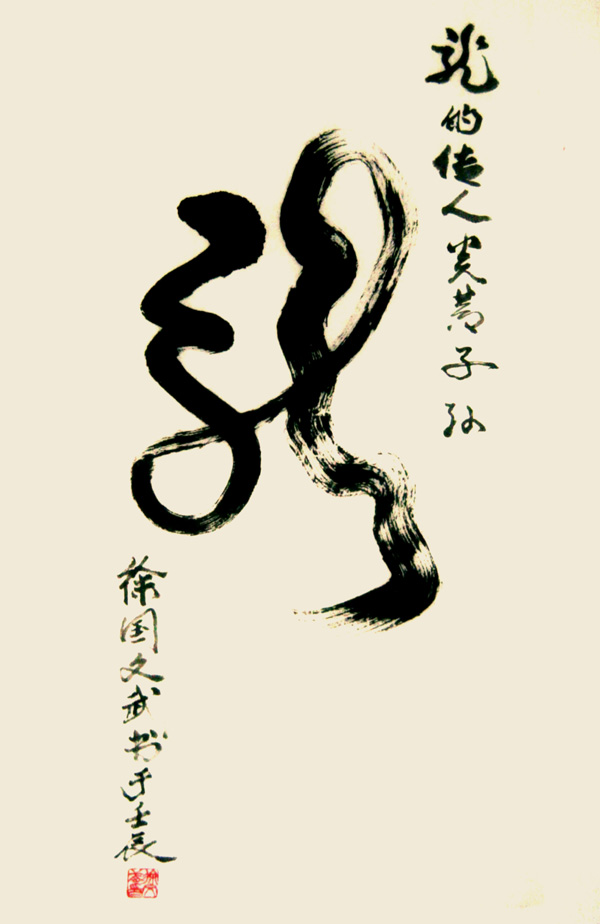 龍的传人炎黄子孙
龍
徐国文武书于壬辰